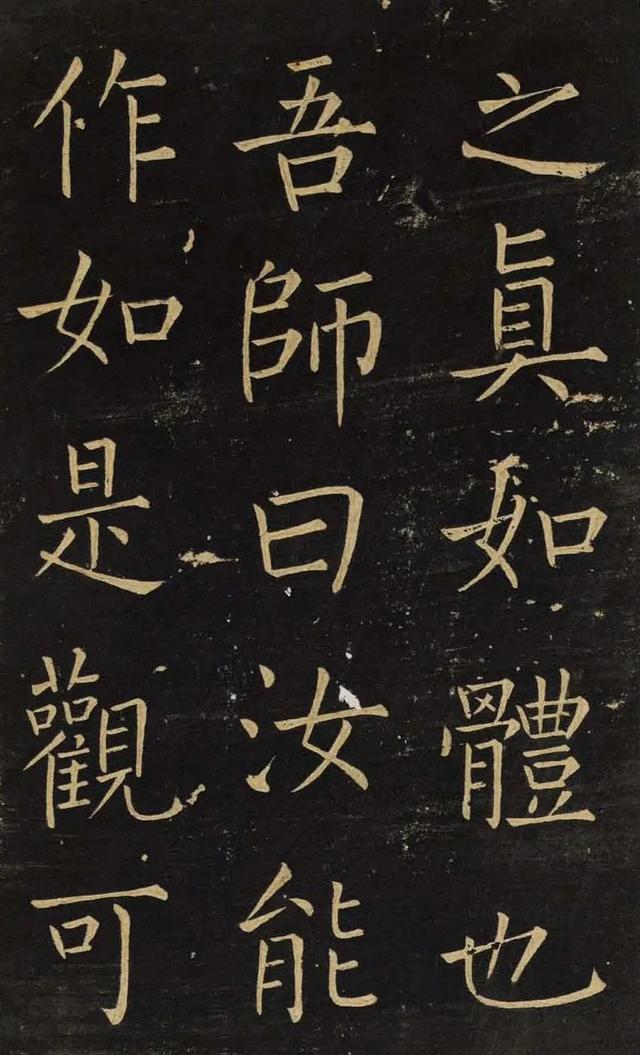 之真如體也
吾師曰汝能
作如是觀可